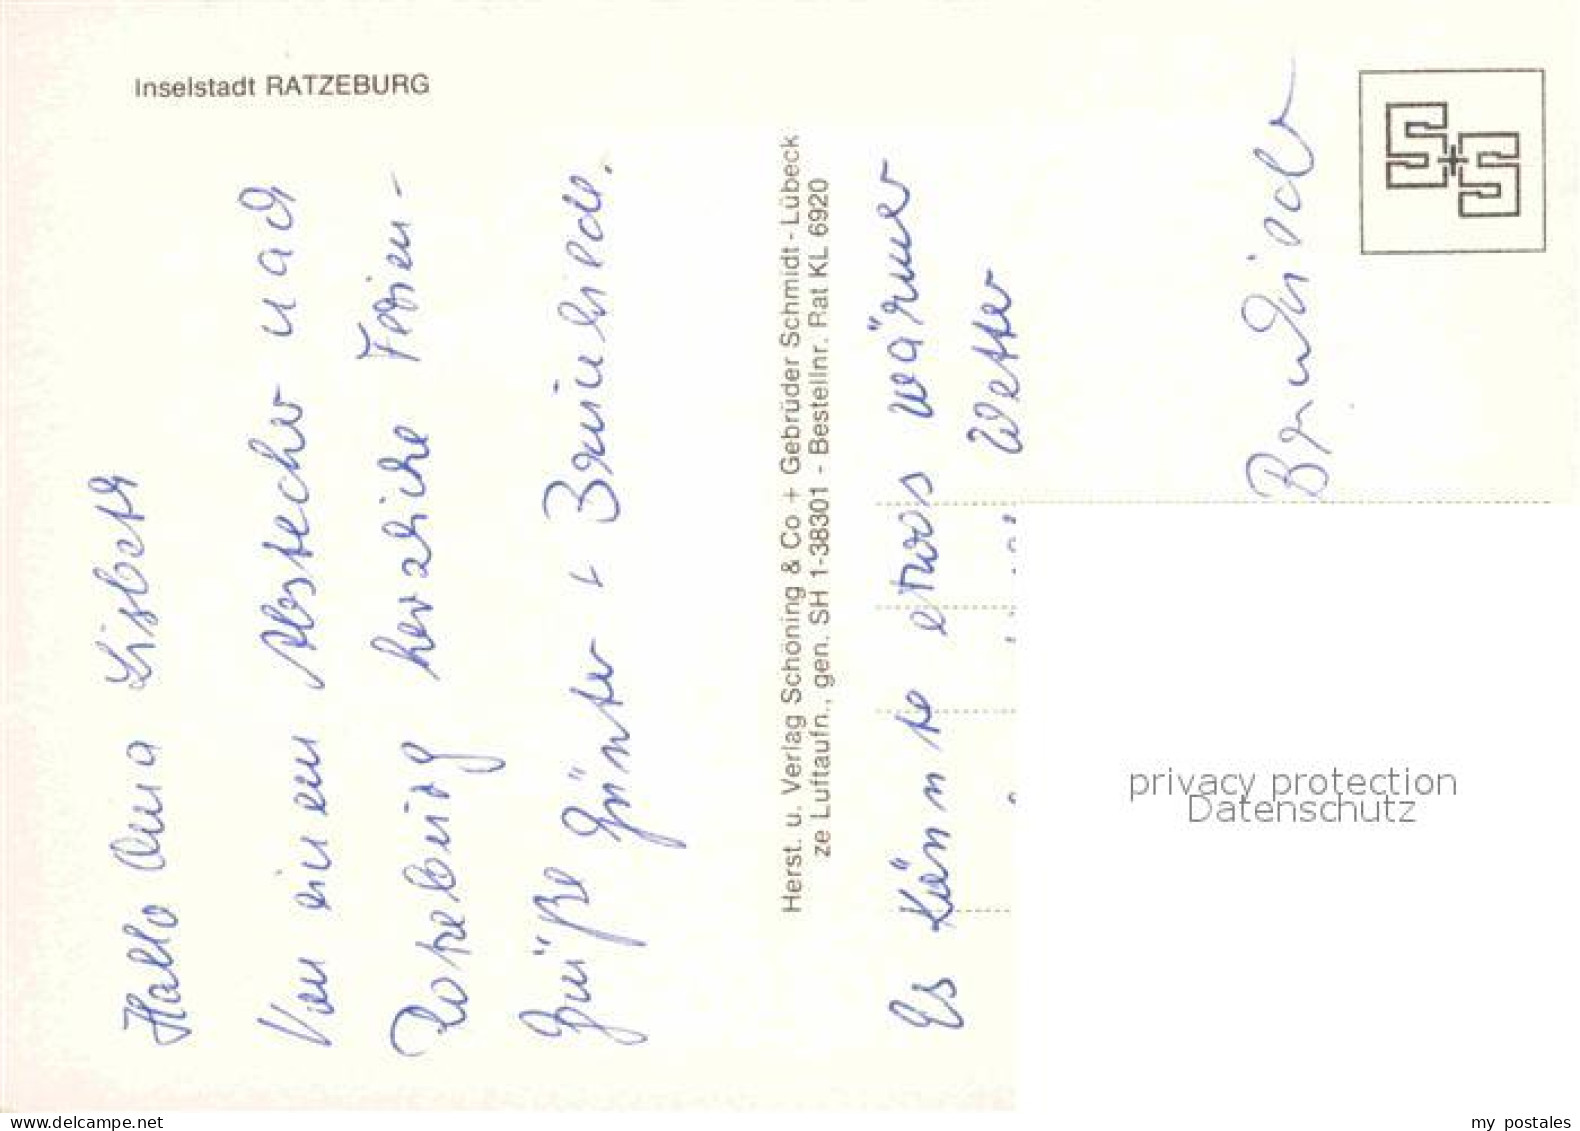 Inselstadt RATZEBURG
Hallo Anna Lisbeth
Von einem Abstecher nach
Ratzeburg herzliche Ferien-
grüße Günter + Brunhilde.
Herst. u. Verlag Schöning & Co + Gebrüder Schmidt - Lübeck
ze Luftaufn., gen. SH 1-38301 - Bestellnr. Rat KL 6920
Es könnte etwas wärmer
Wetter
Brunhilde
S+S
privacy protection
Datenschutz
my postales